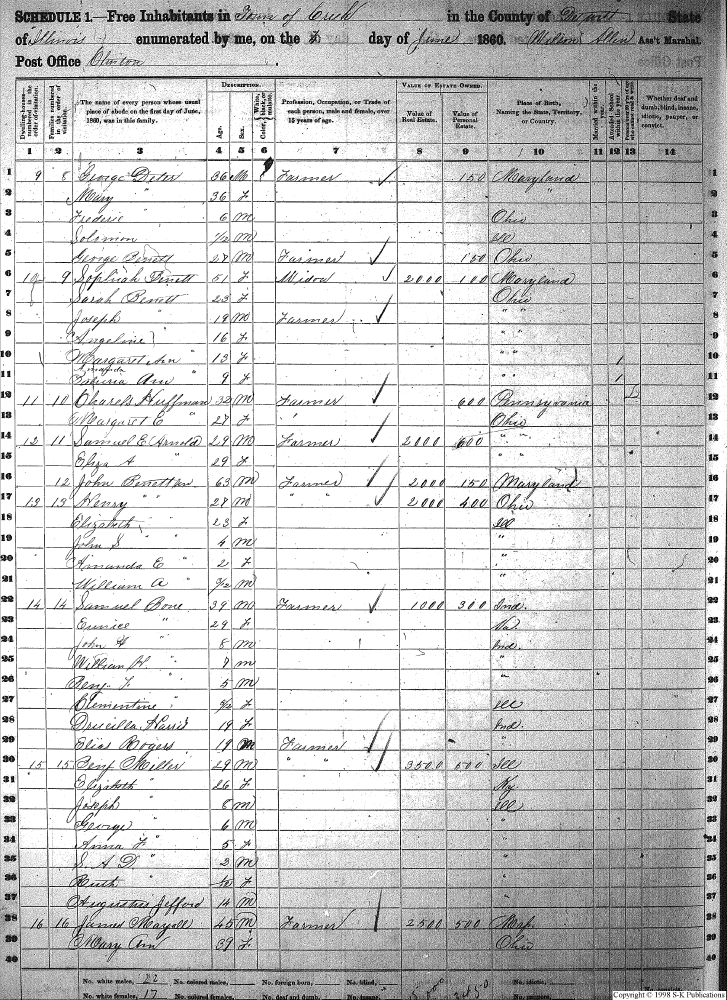 SCHEDULE 1.—Free Inhabitants in Town of Creek in the County of De Witt State
of Illinois enumerated by me, on the 7 day of June 1860. Allen Ass't Marshal.
Post Office Clinton
Dwelling-houses numbered in the order of visitation.
Families numbered in the order of visitation.
The name of every person whose usual place of abode on the first day of June, 1860, was in this family.
DESCRIPTION.
Age.
Sex.
Color, White, black, or mulatto.
Profession, Occupation, or Trade of each person, male and female, over 15 years of age.
VALUE OF ESTATE OWNED.
Value of Real Estate.
Value of Personal Estate.
Place of Birth, Naming the State, Territory, or Country.
Married within the year.
Attended School within the year.
Whether deaf and dumb, blind, insane, idiotic, pauper, or convict.
1 2 3 4 5 6 7 8 9 10 11 12 13 14
1 9 8 George 36 M Farmer 150 Maryland 1
2 Mary " 36 F " 2
3 Frederic " 6 M Ohio 3
4 Solomon 1/2 M Ill 4
5 George 27 M Farmer 150 Ohio 5
6 10 9 51 F Widow 2000 100 Maryland 6
7 Sarah 23 F Ohio 7
8 Joseph " 19 M Farmer " " 8
9 Angeline " 16 F " " 9
10 Margaret Ann " 13 F " " 1 10
Amanda
11 Ann " 9 F " " 1 11
12 11 10 Charels Huffman 32 M Farmer 600 Pennsylvania 12
13 Margaret E " 27 F Ohio 13
14 12 11 Samuel E Arnold 29 M Farmer 2000 600 " " 14
15 Eliza A " 29 F " " 15
16 12 John 63 M Farmer 2000 150 Maryland 16
17 13 13 Henry " " 27 M " " 2000 400 Ohio 17
18 Elizabeth 23 F Ill 18
19 John S " 4 M " 19
20 Amanda E " 2 F " 20
21 William A " M " 21
22 14 14 Samuel Bone 39 M Farmer 1000 300 Ind. 22
23 Eunice " 29 F 23
24 John H " 8 M Ind. 24
25 William H. " 7 m " 25
26 Benj. F. " 5 M " 26
27 Clementine " F Ill 27
28 Druscilla Harris 19 F Ind. 28
29 Elias Rogers 19 M Farmer " 29
30 15 15 Benj Miller 29 M " " 3500 500 Ill 30
31 Elizabeth " 26 F Ky 31
32 Joseph " 8 M Ill 32
33 George " 6 M " 33
34 Anna F " 5 F " 34
35 S. A D. " 2 M " 35
36 Ruth " F " 36
37 Augustus Jefford 14 M " 37
38 16 16 James 45 M Farmer 2500 500 38
39 Mary Ann " 39 F Ohio 39
40 40
No. white males, 22 No. colored males, No. foreign born, No. blind, No. idiotic,
No. white females, 17 No. colored females, No. deaf and dumb, No. insane,
Copyright © 1998 S-K Publications